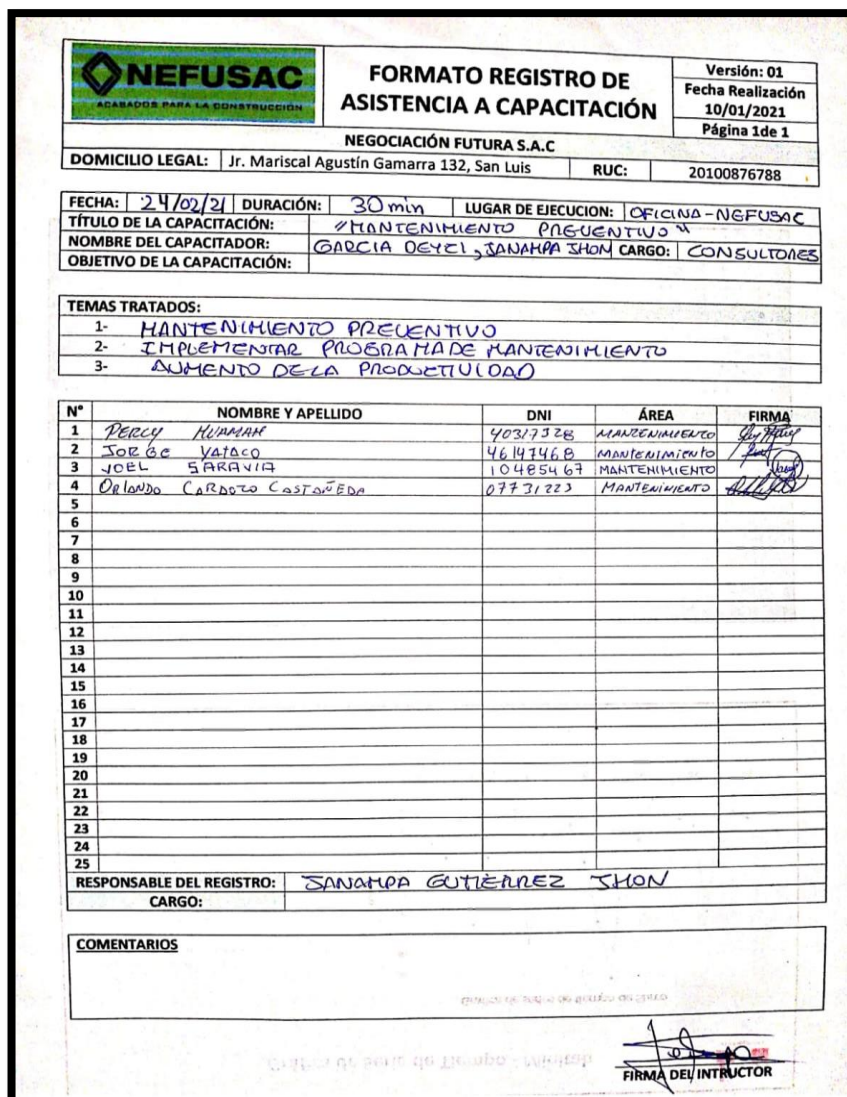 NEFUSAC
ACABADOS PARA LA CONSTRUCCIÓN
FORMATO REGISTRO DE
ASISTENCIA A CAPACITACIÓN
Versión: 01
Fecha Realización
10/01/2021
Página 1de 1
NEGOCIACIÓN FUTURA S.A.C
DOMICILIO LEGAL: Jr. Mariscal Agustín Gamarra 132, San Luis RUC: 20100876788
FECHA: 24/02/21 DURACIÓN: 30 min LUGAR DE EJECUCION: OFICINA-NEFUSAC
TÍTULO DE LA CAPACITACIÓN: "MANTENIMIENTO PREVENTIVO"
NOMBRE DEL CAPACITADOR: GARCIA DEYCI, JANAMPA JHON CARGO: CONSULTORES
OBJETIVO DE LA CAPACITACIÓN:
TEMAS TRATADOS:
1- MANTENIMIENTO PREVENTIVO
2- IMPLEMENTAR PROGRAMA DE MANTENIMIENTO
3- AUMENTO DE LA PRODUCTIVIDAD
N° NOMBRE Y APELLIDO DNI ÁREA FIRMA
1 PERCY HUAMAN 40317328 MANTENIMIENTO
2 JORGE YATACO 46147468 MANTENIMIENTO
3 JOEL SARAVIA 10485467 MANTENIMIENTO
4 ORLANDO CARDOZO CASTAÑEDA 07731223 MANTENIMIENTO
5
6
7
8
9
10
11
12
13
14
15
16
17
18
19
20
21
22
23
24
25
RESPONSABLE DEL REGISTRO: JANAMPA GUTIÉRREZ JHON
CARGO:
COMENTARIOS
FIRMA DEL INTRUCTOR